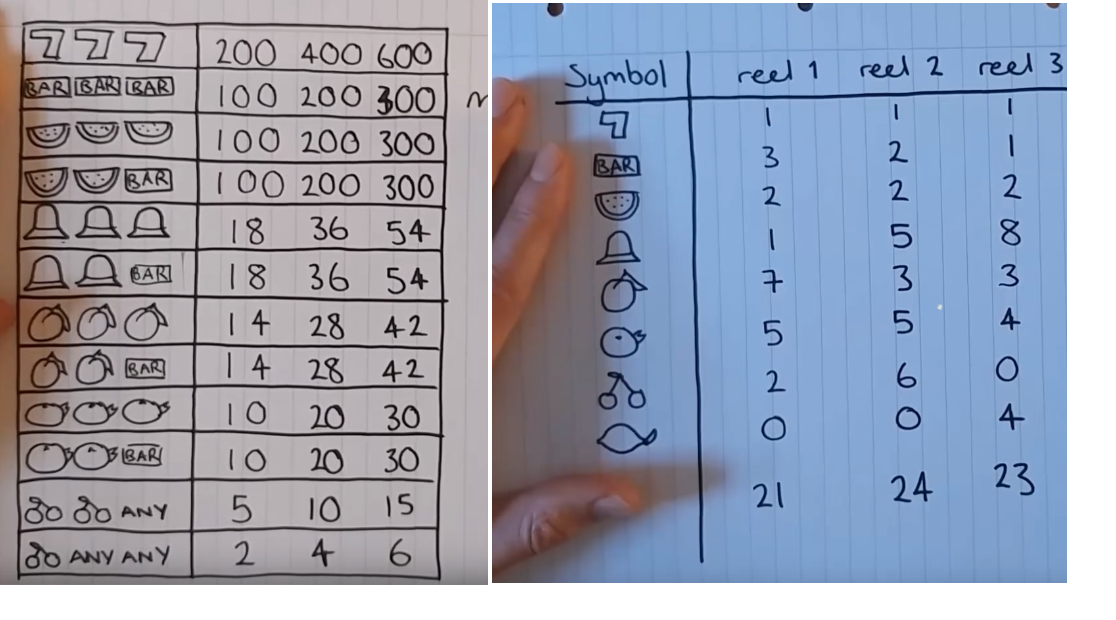 7 7 7 200 400 600
BAR BAR BAR 100 200 300
100 200 300
BAR 100 200 300
18 36 54
BAR 18 36 54
14 28 42
BAR 14 28 42
10 20 30
BAR 10 20 30
ANY 5 10 15
ANY ANY 2 4 6
Symbol reel 1 reel 2 reel 3
7 1 1 1
BAR 3 2 1
2 2 2
1 5 8
7 3 3
5 5 4
2 6 0
0 0 4
21 24 23